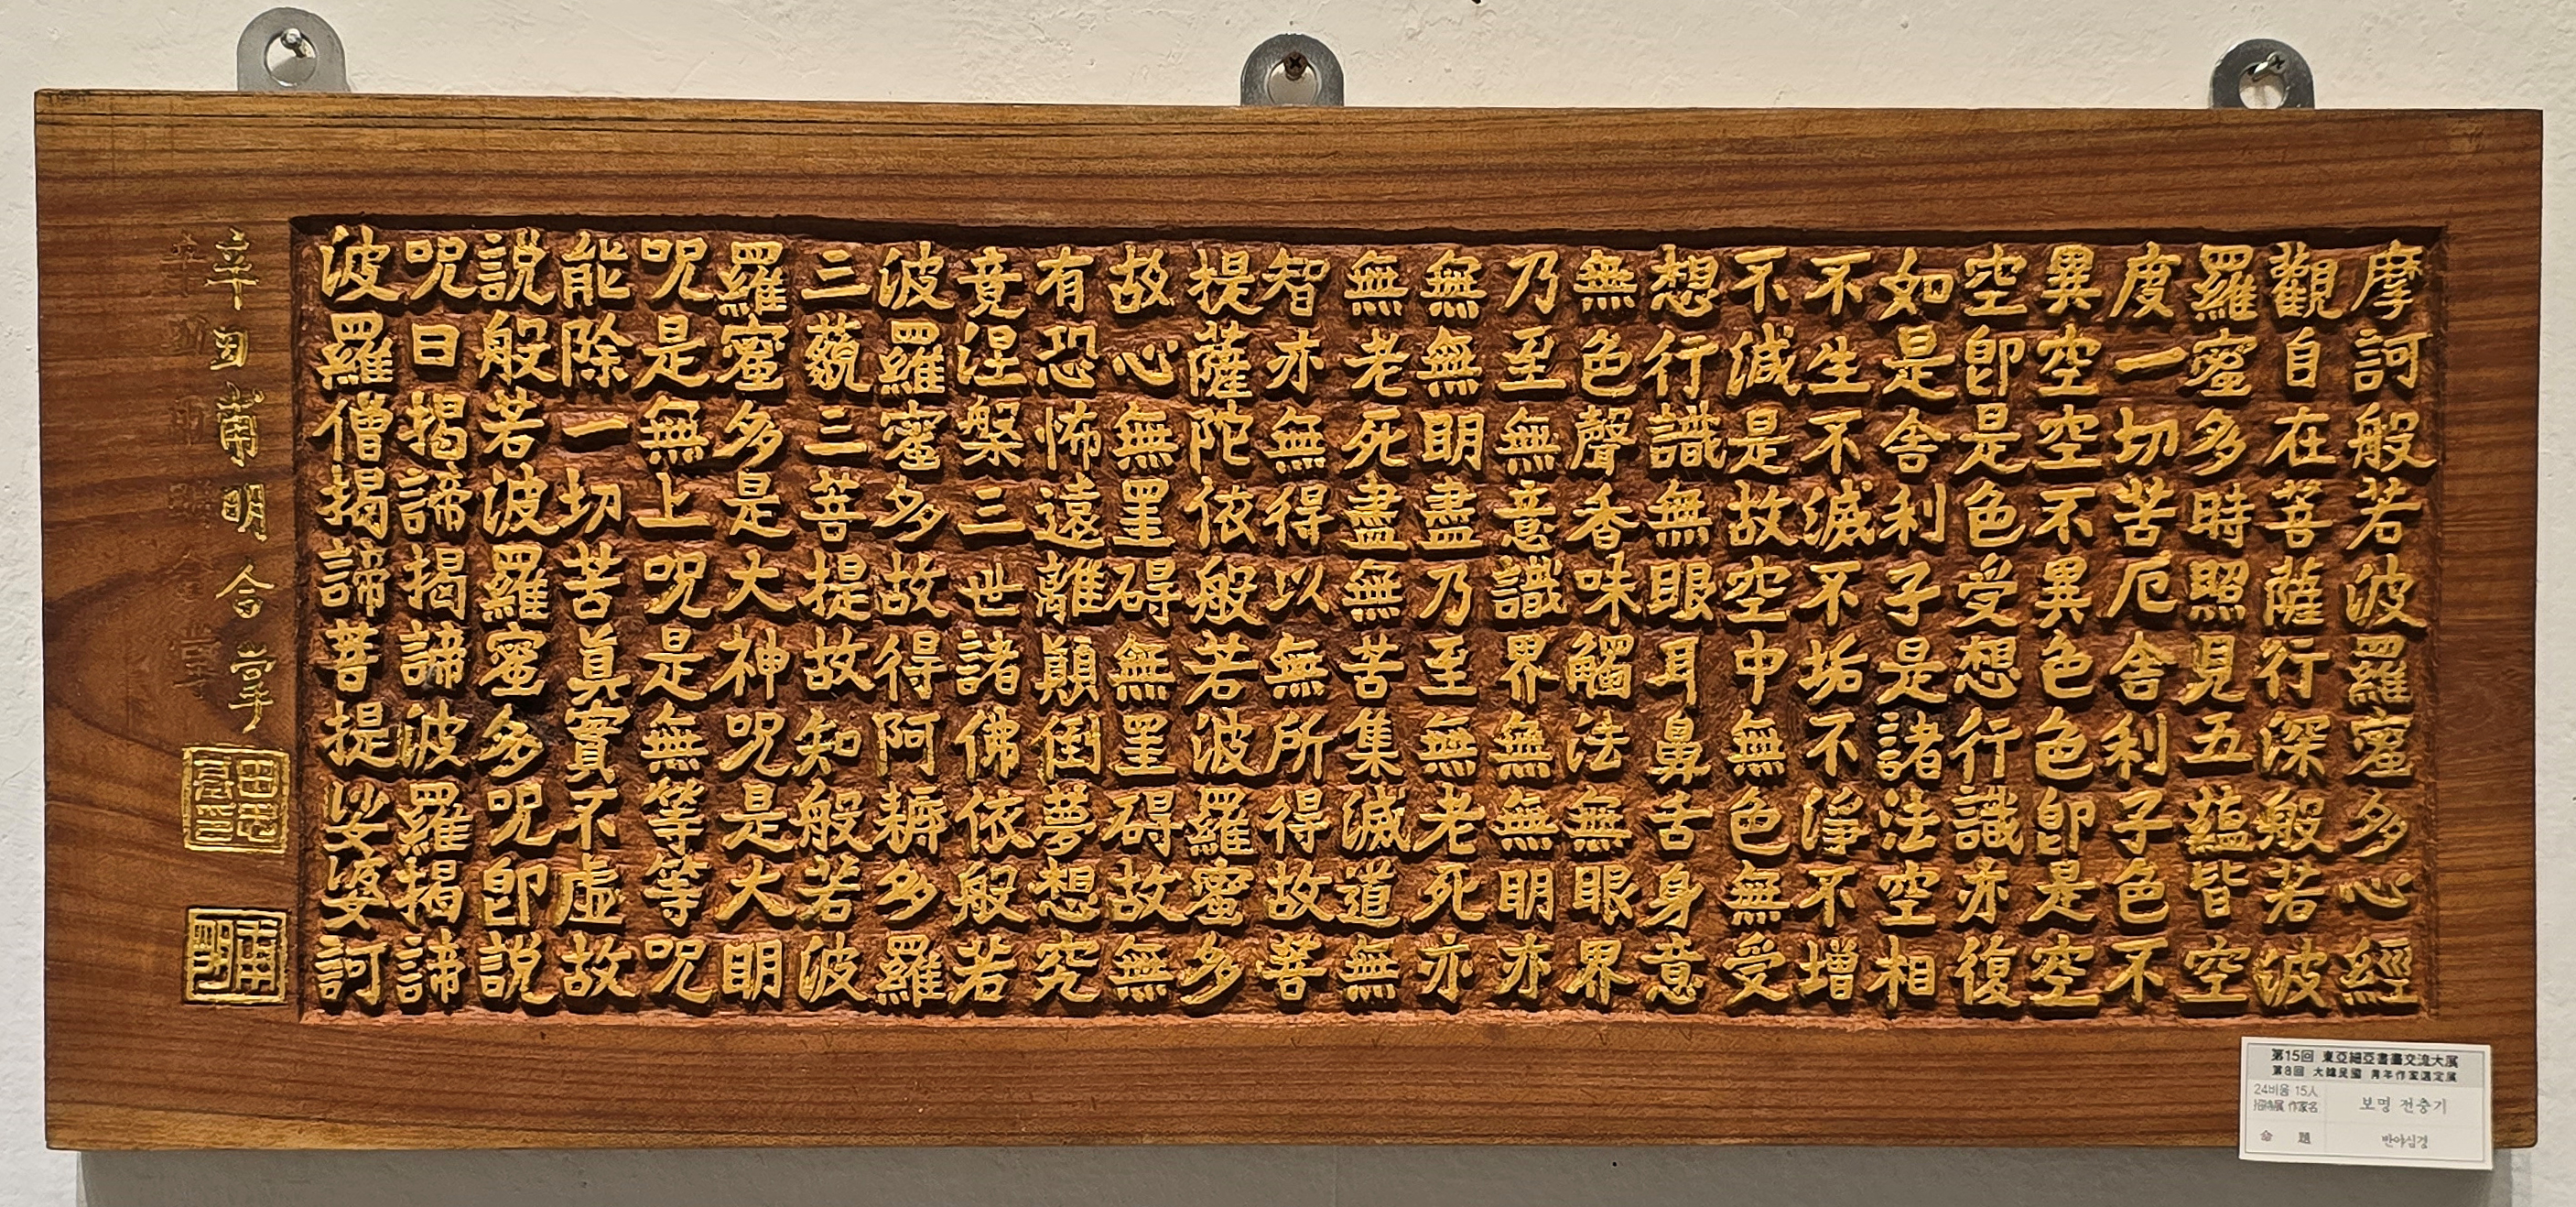 摩訶般若波羅蜜多心經
觀自在菩薩行深般若波
羅蜜多時照見五蘊皆空
度一切苦厄舍利子色不
異空空不異色色卽是空
空卽是色受想行識亦復
如是舍利子是諸法空相
不生不滅不垢不淨不增
不減是故空中無色無受
想行識無眼耳鼻舌身意
無色聲香味觸法無眼界
乃至無意識界無無明亦
無無明盡乃至無老死亦
無老死盡無苦集滅道無
智亦無得以無所得故菩
提薩陀依般若波羅蜜多
故心無罣碍無罣碍故無
有恐怖遠離顚倒夢想究
竟涅槃三世諸佛依般若
波羅蜜多故得阿耨多羅
三藐三菩提故知般若波
羅蜜多是大神呪是大明
呪是無上呪是無等等呪
能除一切苦眞實不虛故
說般若波羅蜜多呪卽說
呪曰揭諦揭諦波羅揭諦
波羅僧揭諦菩提娑婆訶
辛丑甫明合掌
甫明
第15回 東亞細亞書畵交流大展
第8回 大韓民國 靑年作家選定展
24비움 15人
招待展 作家名 보명 전충기
命 題 반야심경